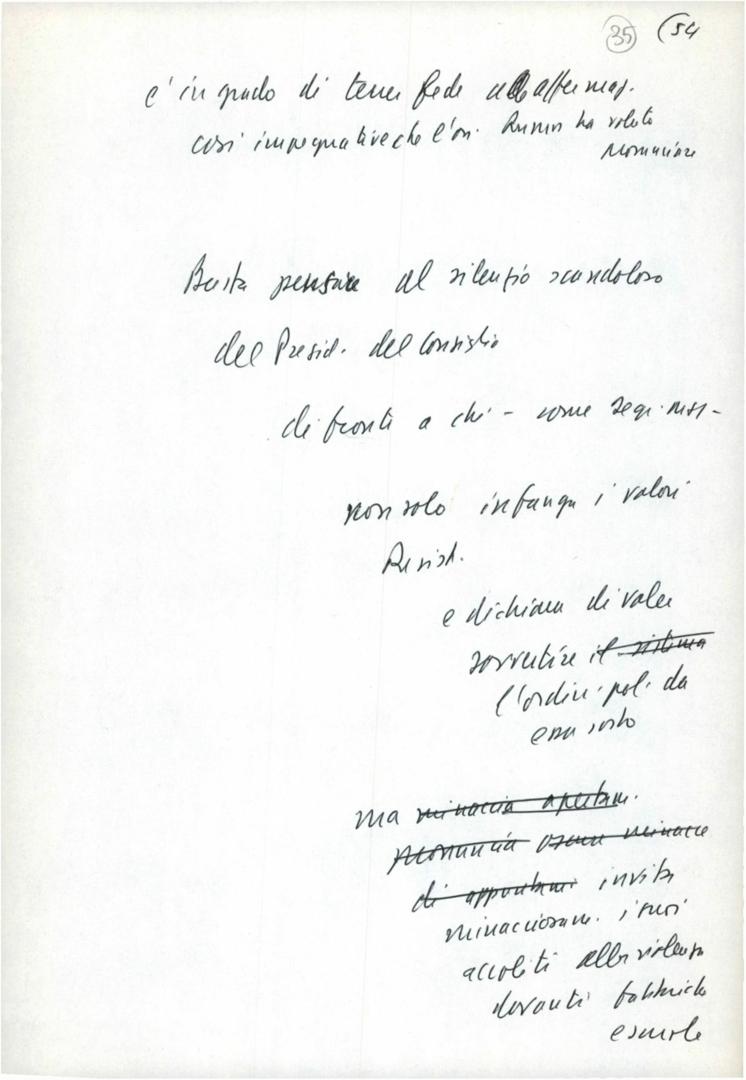 35 (54
e' in grado di tener fede alle affermaz.
così impegnative che l'on. Rumor ha voluto
pronunciare
Basta pensare al silenzio scandoloso
del Presid. del Consiglio
di fronti a chi - come segr. miss -
non solo infanga i valori
Resist.
e dichiara di voler
sovvertire il sistema
l'ordin. pol. da
essa sorto
ma minaccia apertam.
pronuncia oscure minacce
di appuntam. invita
minacciosam. i suoi
accoliti alla violenza
davanti fabbriche
e scuole